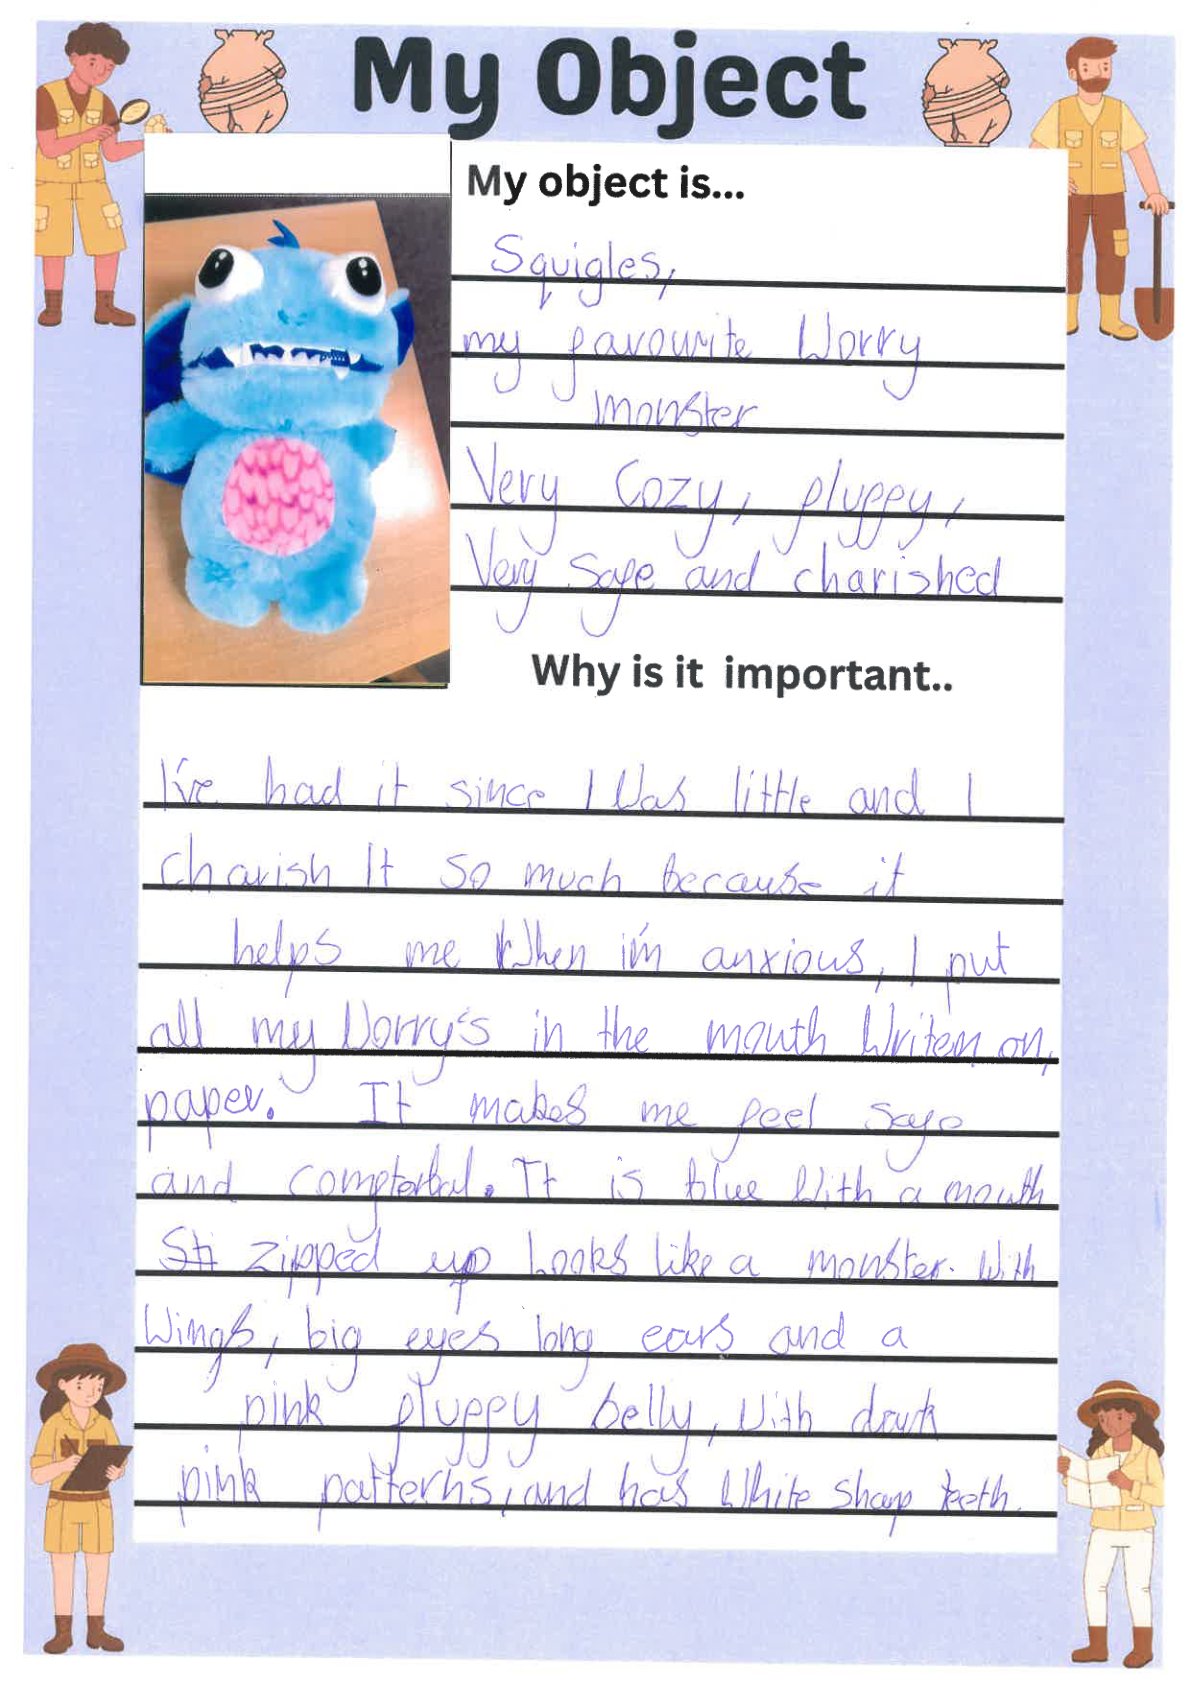 My Object
My object is...
Squigles,
my favourite Worry
monster
Very Cozy, fluffy,
Very safe and charished
Why is it important..
I've had it since I Was little and I
charish It so much because it
helps me When i'm anxious, I put
all my Worry's in the mouth Writen on,
paper. It makes me feel safe
and comfterbal. It is blue With a mouth
Sti zipped up Looks like a monster. With
Wings, big eyes long ears and a
pink fluffy belly, With dark
pink patterns, and has White sharp teeth.